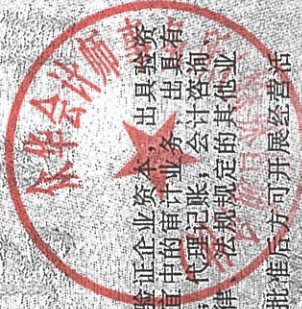 众华会计师事
验证企业资本，出具验资
宜中的审计业务，出具有
；代理记账；会计咨询、
律、法规规定的其他业
批准后方可开展经营活